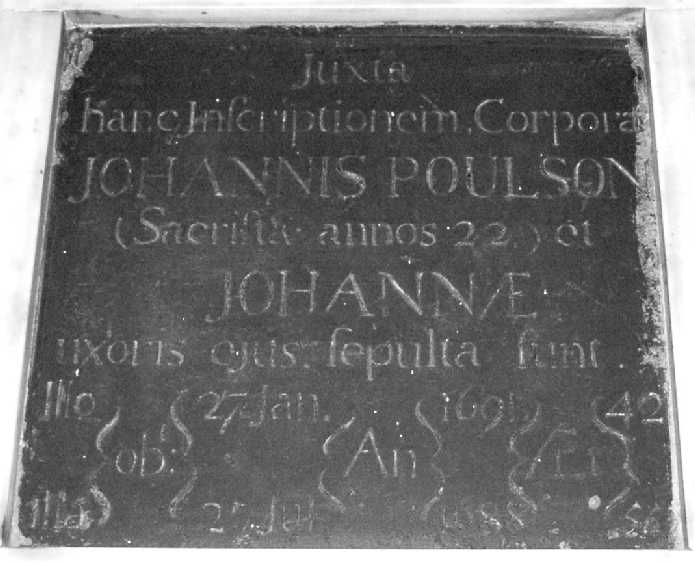 Juxta
hanc Inſcriptionem Corpora
JOHANNIS POULSON
(Sacriſtæ annos 22) et
JOHANNÆ
uxoris ejus ſepulta ſunt.
Ille 27 Jan. 1691 42
ob: An Æt
Illa Jul 1688